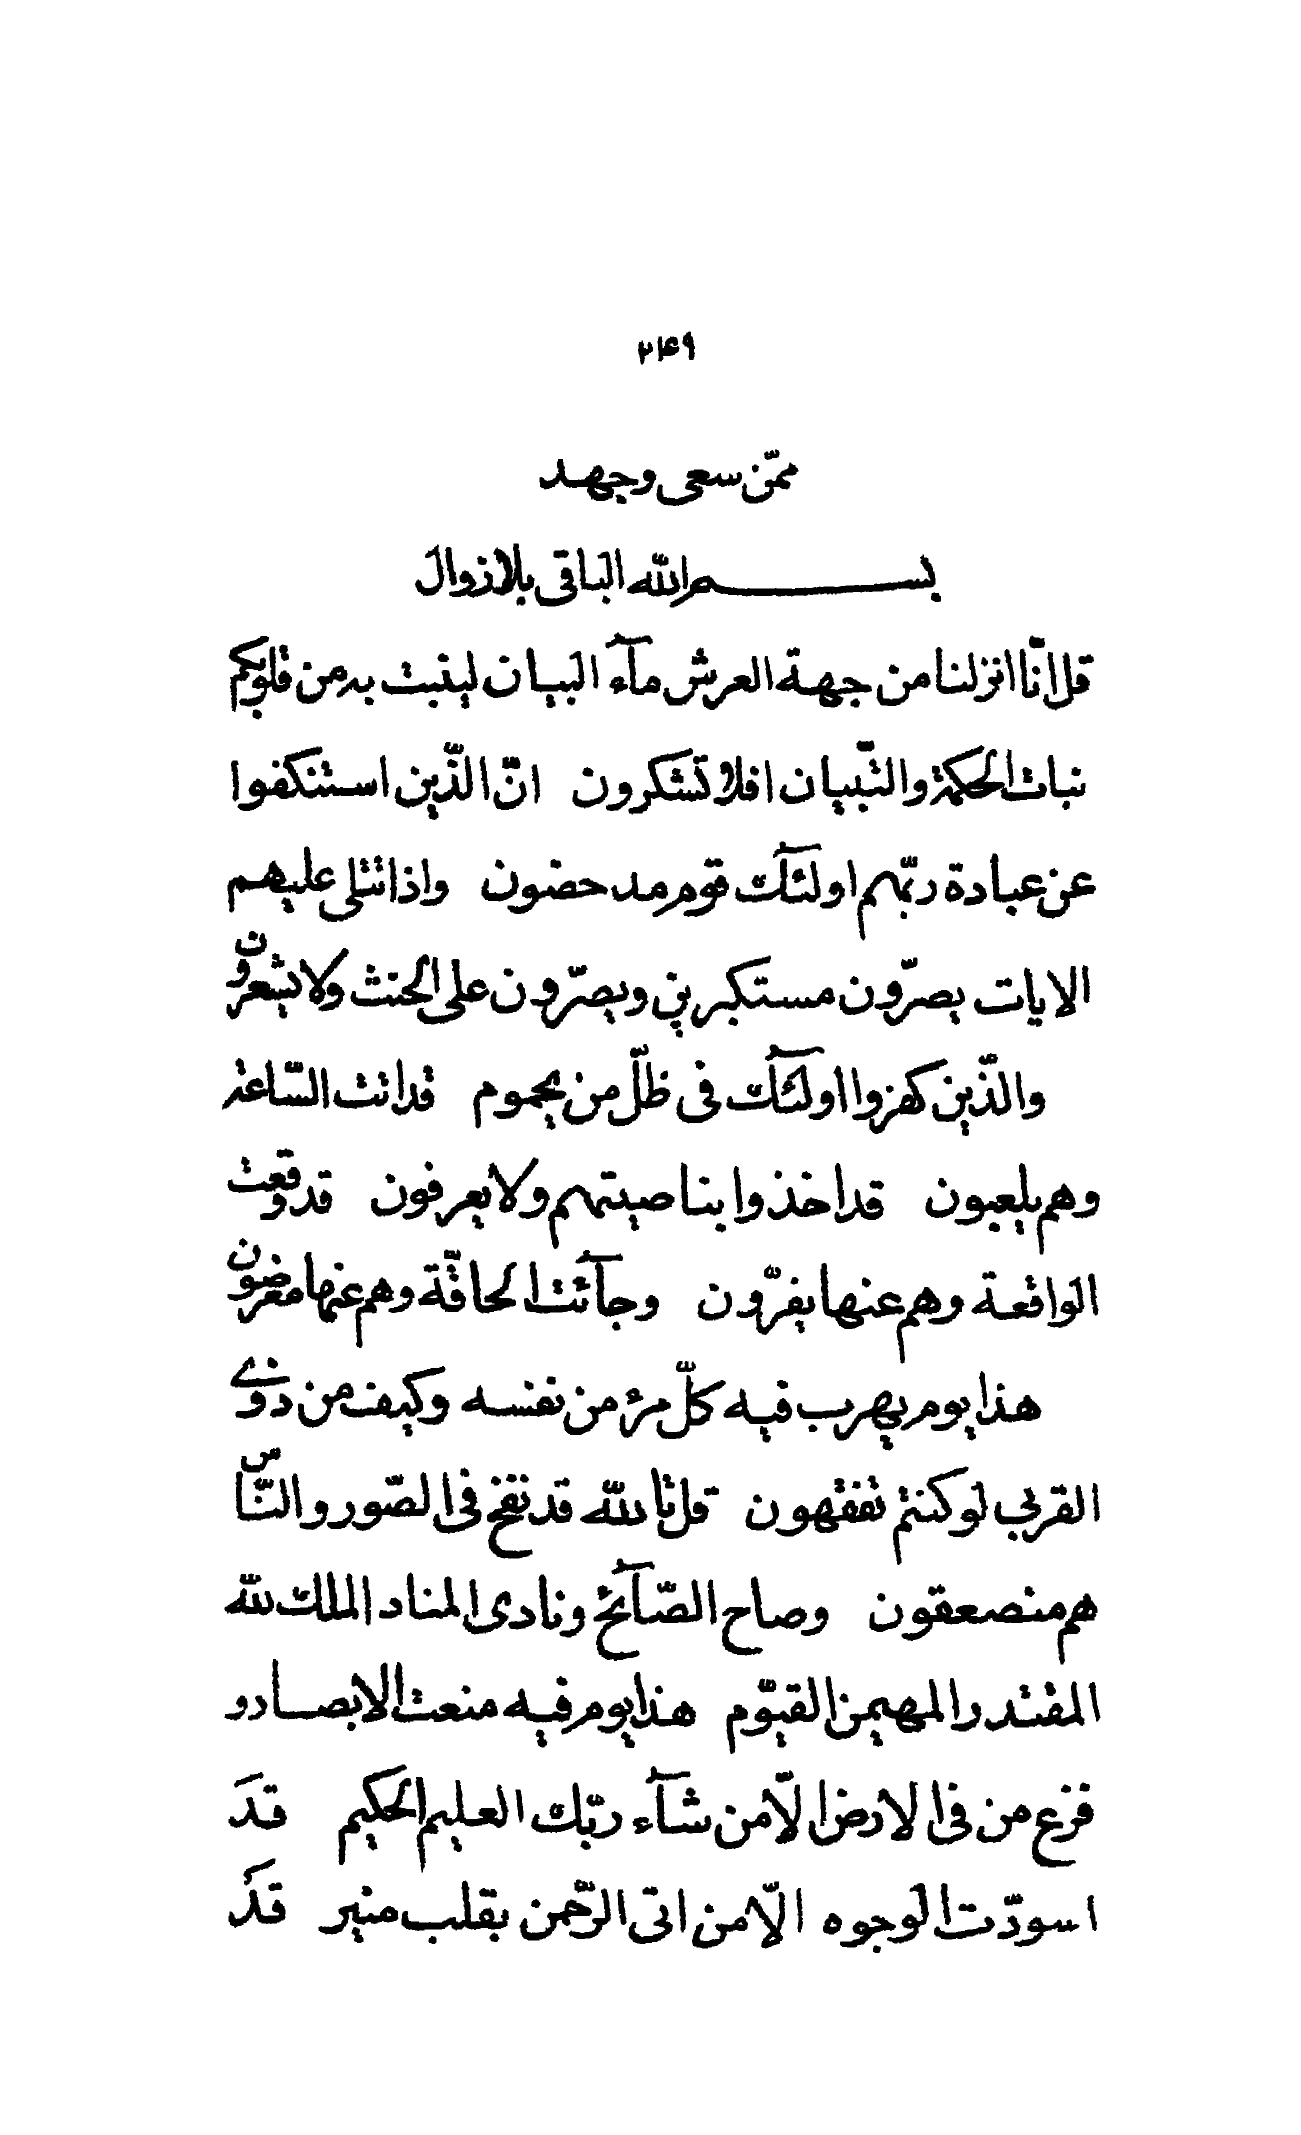 ۲۴۹
ممّن سعی وجهد
بسم الله الباقی بلا زوال
قل انّا انزلنا من جهة العرش مآء البیان لینبت به من قلوبکم
نبات الحکمة والتّبیان افلا تشکرون انّ الّذین استنکفوا
عن عبادة ربّهم اولئآک قوم مدحضون واذا تتلی علیهم
الایات یصرّون مستکبرین ویصرّون علی الحنث ولا یشعرون
والّذین کفروا اولئآک فی ظلّ من یحموم قد اتت السّاعة
وهم یلعبون قد اخذوا بناصیتهم ولا یعرفون قد وقعت
الواقعة وهم عنها یفرّون وجآئت الحاقّة وهم عنها معرضون
هذا یوم یهرب فیه کلّ مرء من نفسه وکیف من ذوی
القربی لو کنتم تفقهون قل تالله قد نفخ فی الصّور والنّاس
هم منصعقون وصاح الصّآئح ونادی المناد الملک لله
المقتدر المهیمن القیّوم هذا یوم فیه منعت الابصار و
فزع من فی الارض الّا من شآء ربّک العلیم الحکیم قد
اسودّت الوجوه الّا من اتی الرّحمن بقلب منیر قد